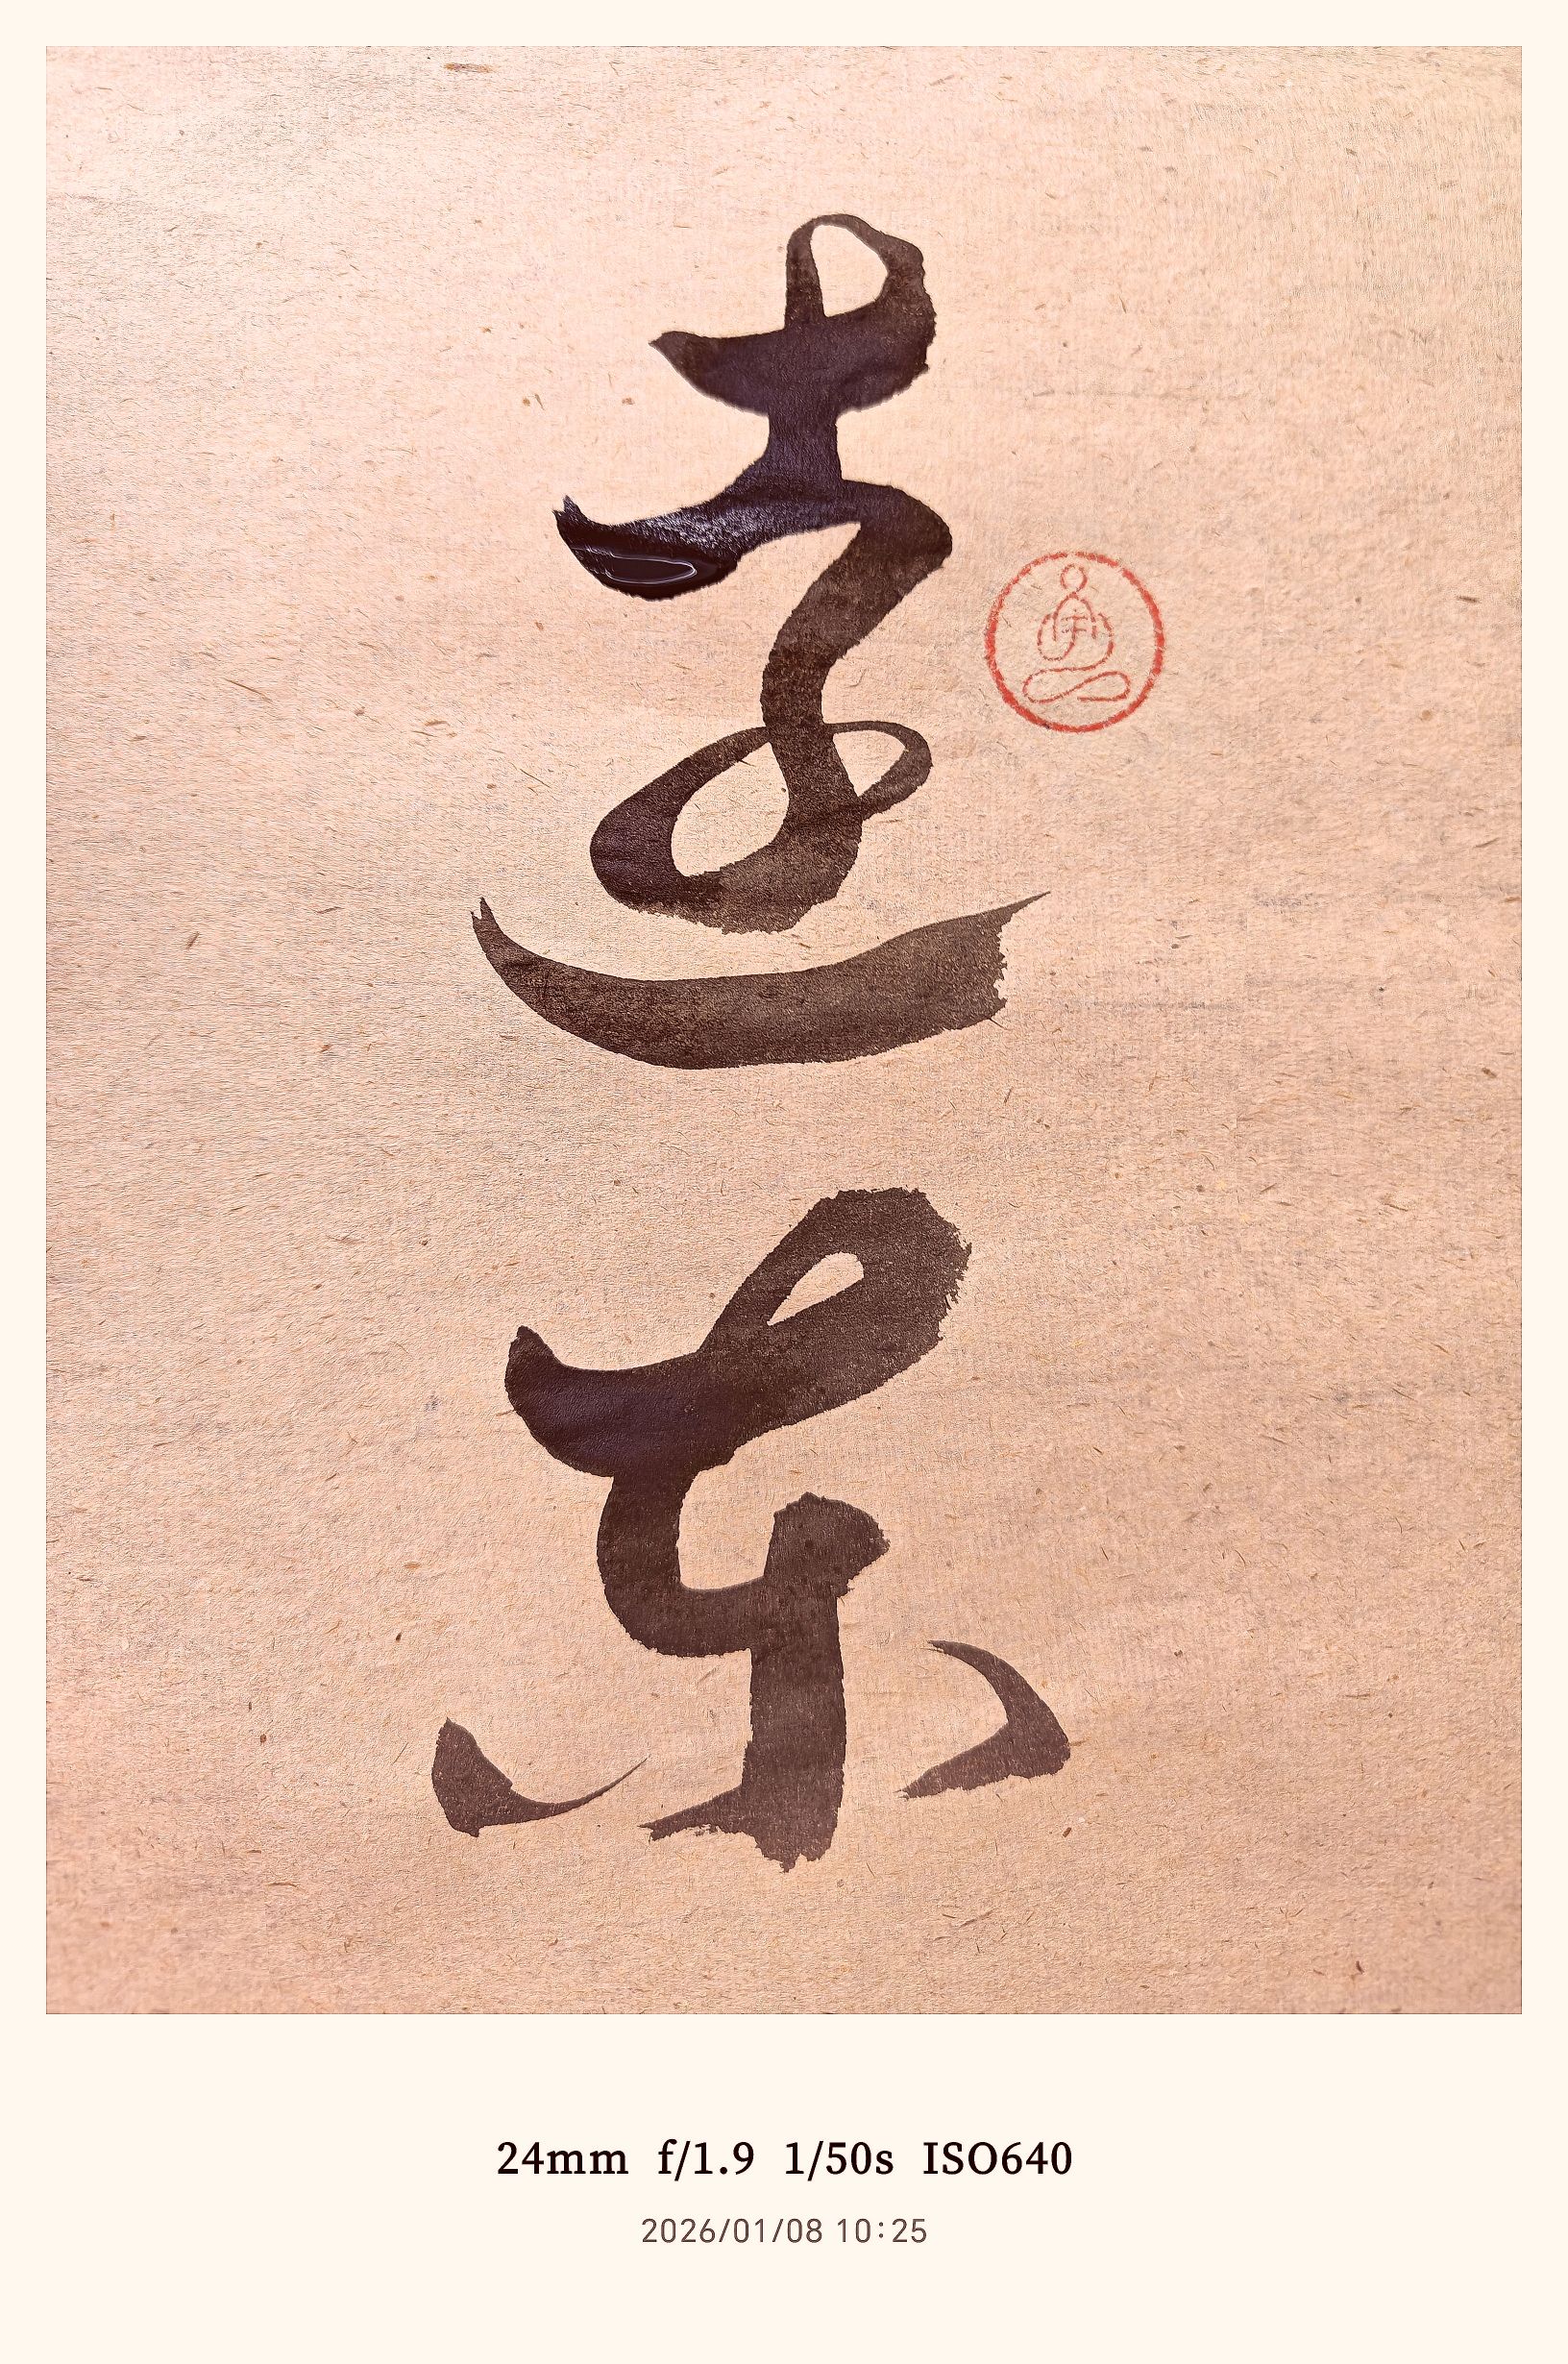 喜乐
24mm f/1.9 1/50s ISO640
2026/01/08 10:25